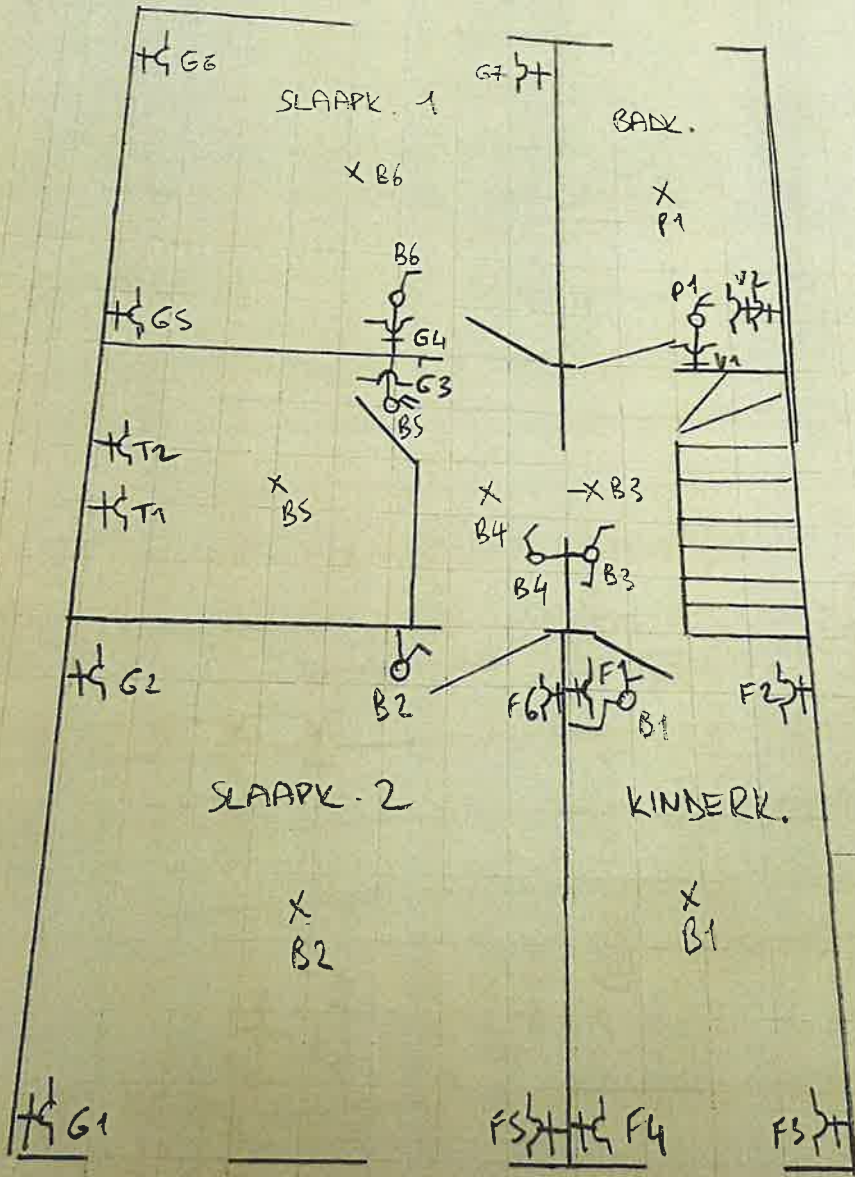 G6
G7
SLAAPK. 1
BADK.
B6
P1
B6
P1
V2
G5
G4
V1
G3
B5
T2
T1
B5
B4
B3
B4
B3
G2
B2
F6
F1
B1
F2
SLAAPK. 2
KINDERK.
B2
B1
G1
F5
F4
F3